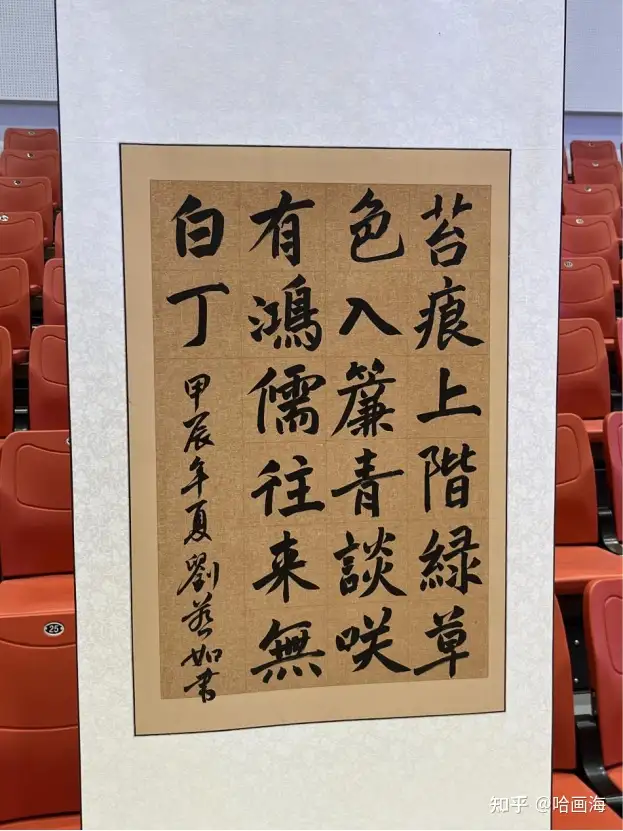 苔痕上階緑草
色入簾青談咲
有鴻儒往来無
白丁
甲辰年夏劉若如書
25
知乎 @哈画海